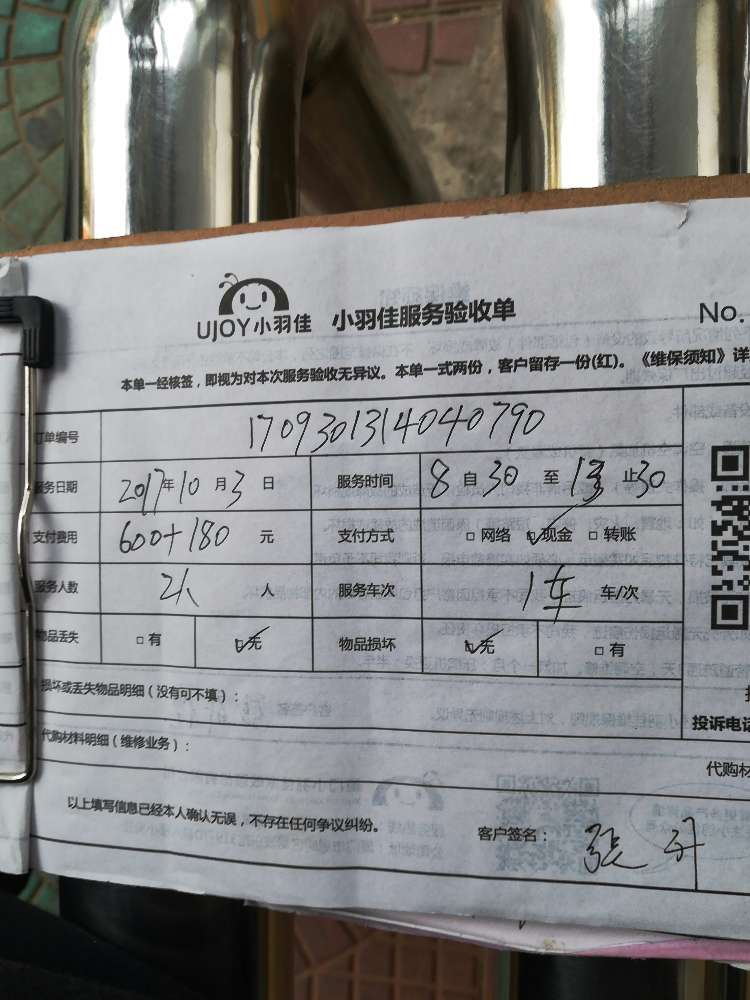 UJOY小羽佳 小羽佳服务验收单 No.
本单一经核签，即视为对本次服务验收无异议。本单一式两份，客户留存一份(红)。《维保须知》详
订单编号 1709301314040790
服务日期 2017年10月3日 服务时间 8自30至 止30
支付费用 600+180 元 支付方式 □网络 ☑现金 □转账
服务人数 2人 人 服务车次 1车 车/次
物品丢失 □有 ☑无 物品损坏 ☑无 □有
损坏或丢失物品明细（没有可不填）：
投诉电话
代购材料明细（维修业务）：
代购材
以上填写信息已经本人确认无误，不存在任何争议纠纷。
客户签名： 張升